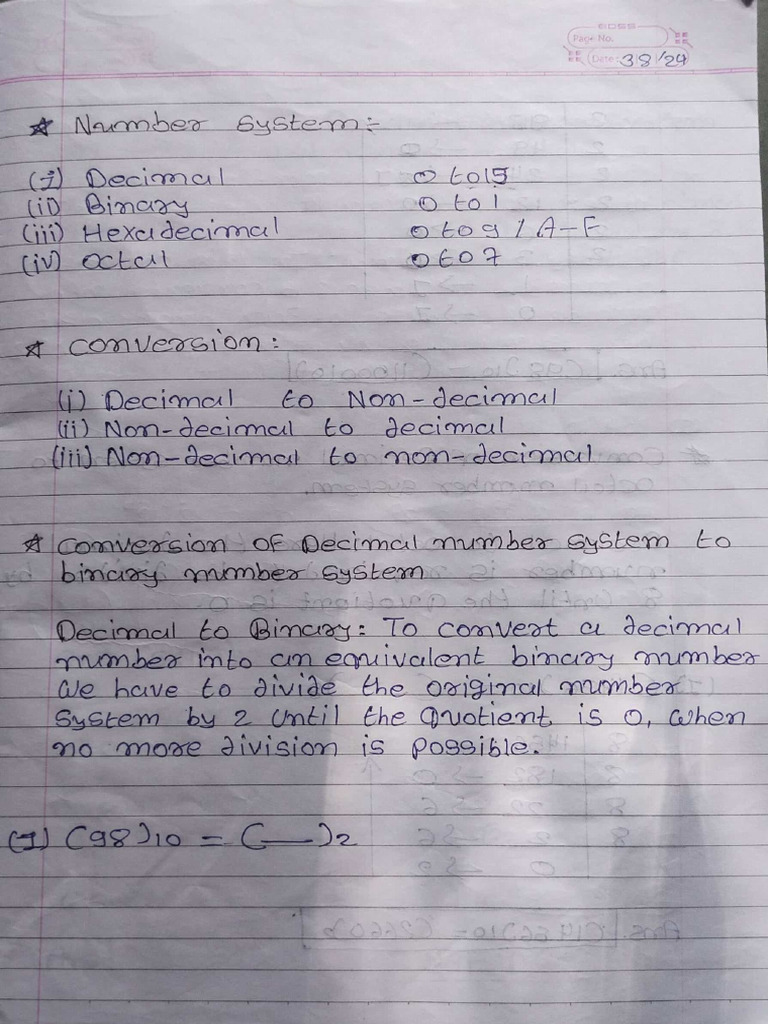 Page No.
Date: 38/24
☆ Number System:-
(i) Decimal 0 to 15
(ii) Binary 0 to 1
(iii) Hexadecimal 0 to 9 / A-F
(iv) Octal 0 to 7
☆ Conversion:
(i) Decimal to Non-decimal
(ii) Non-decimal to decimal
(iii) Non-decimal to non-decimal
☆ Conversion of Decimal number system to
binary number system
Decimal to Binary: To convert a decimal
number into an equivalent binary number
We have to divide the original number
System by 2 until the Quotient is 0, when
no more division is possible.
(1) (98)10 = (—)2